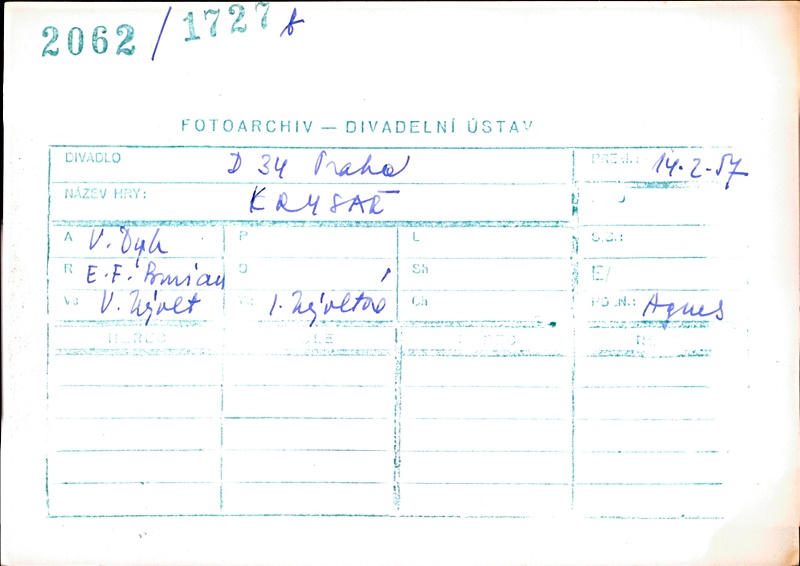 2062 / 1727 f
FOTOARCHIV — DIVADELNÍ ÚSTAV
DIVADLO D 34 Praha PREM.: 14.2.57
NÁZEV HRY: KRYSAŘ
A V. Dyk P L S.S.:
R E.F. Burian D Sh E/
Vs V. Nývlt I. Nývltová Ch Agnes
HEREC